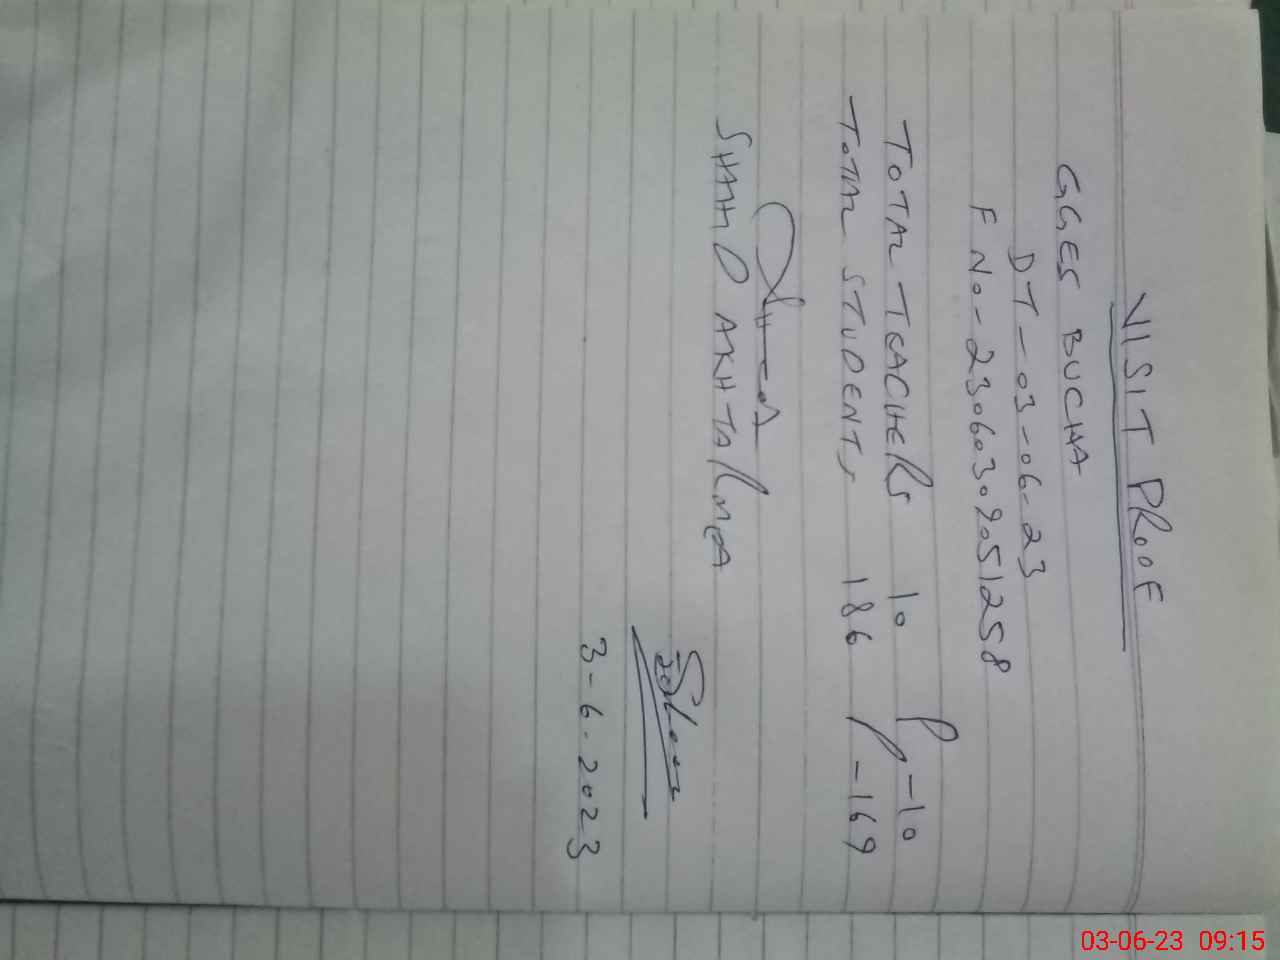 VISIT PROOF
GGES BUCHA
DT-03-06-23
F No-23060309051258
TOTAL TEACHERS 10 P-10
TOTAL STUDENTS 186 P-169
SHAH AKHTAR
3-6-2023
03-06-23 09:15